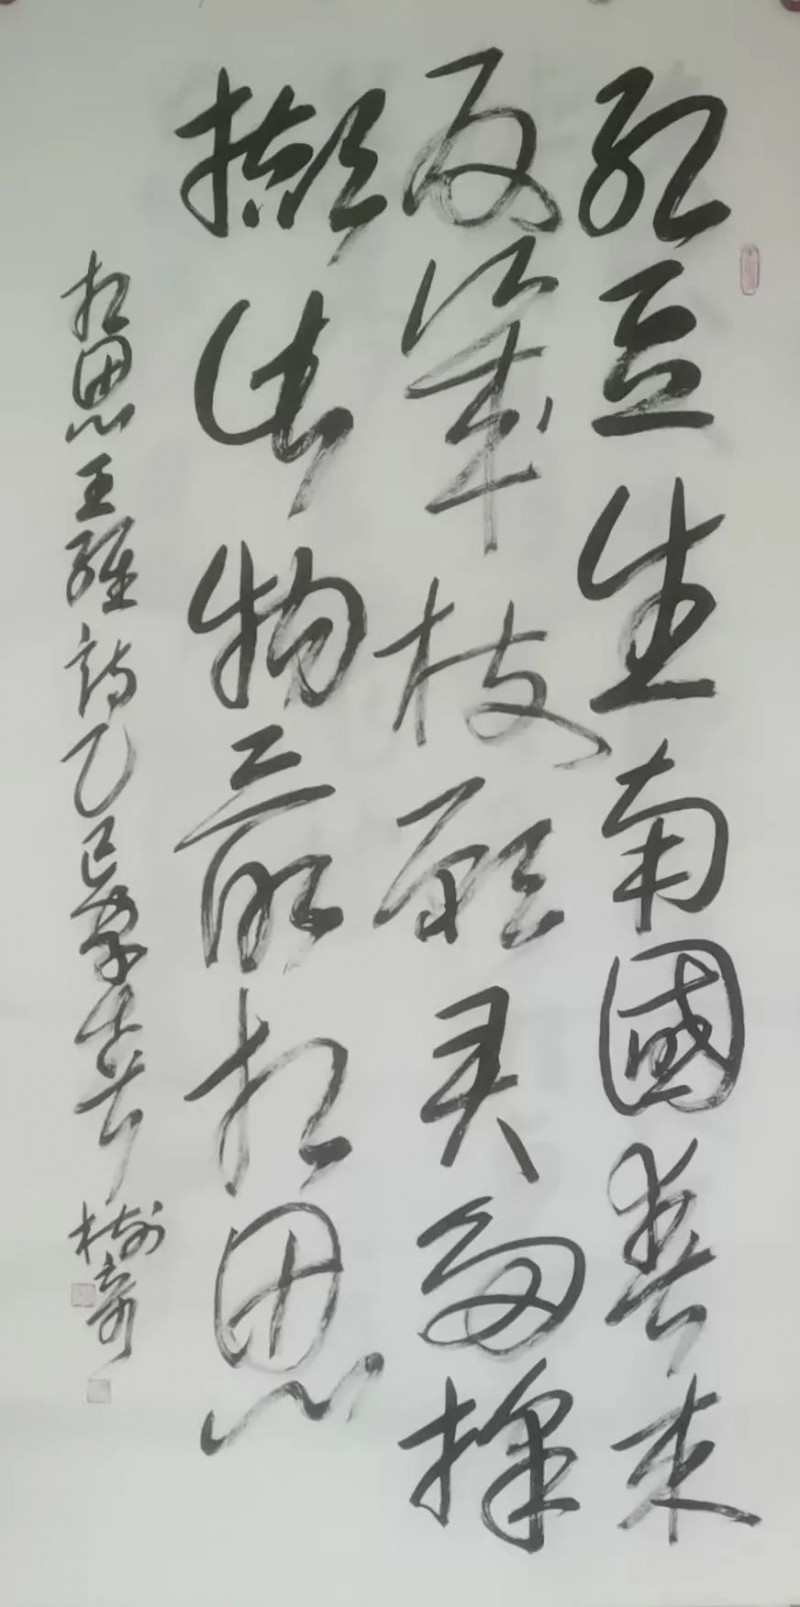 紅豆生南國春来
发幾枝愿君多採
撷此物最相思
相思王維詩乙巳 樹奇